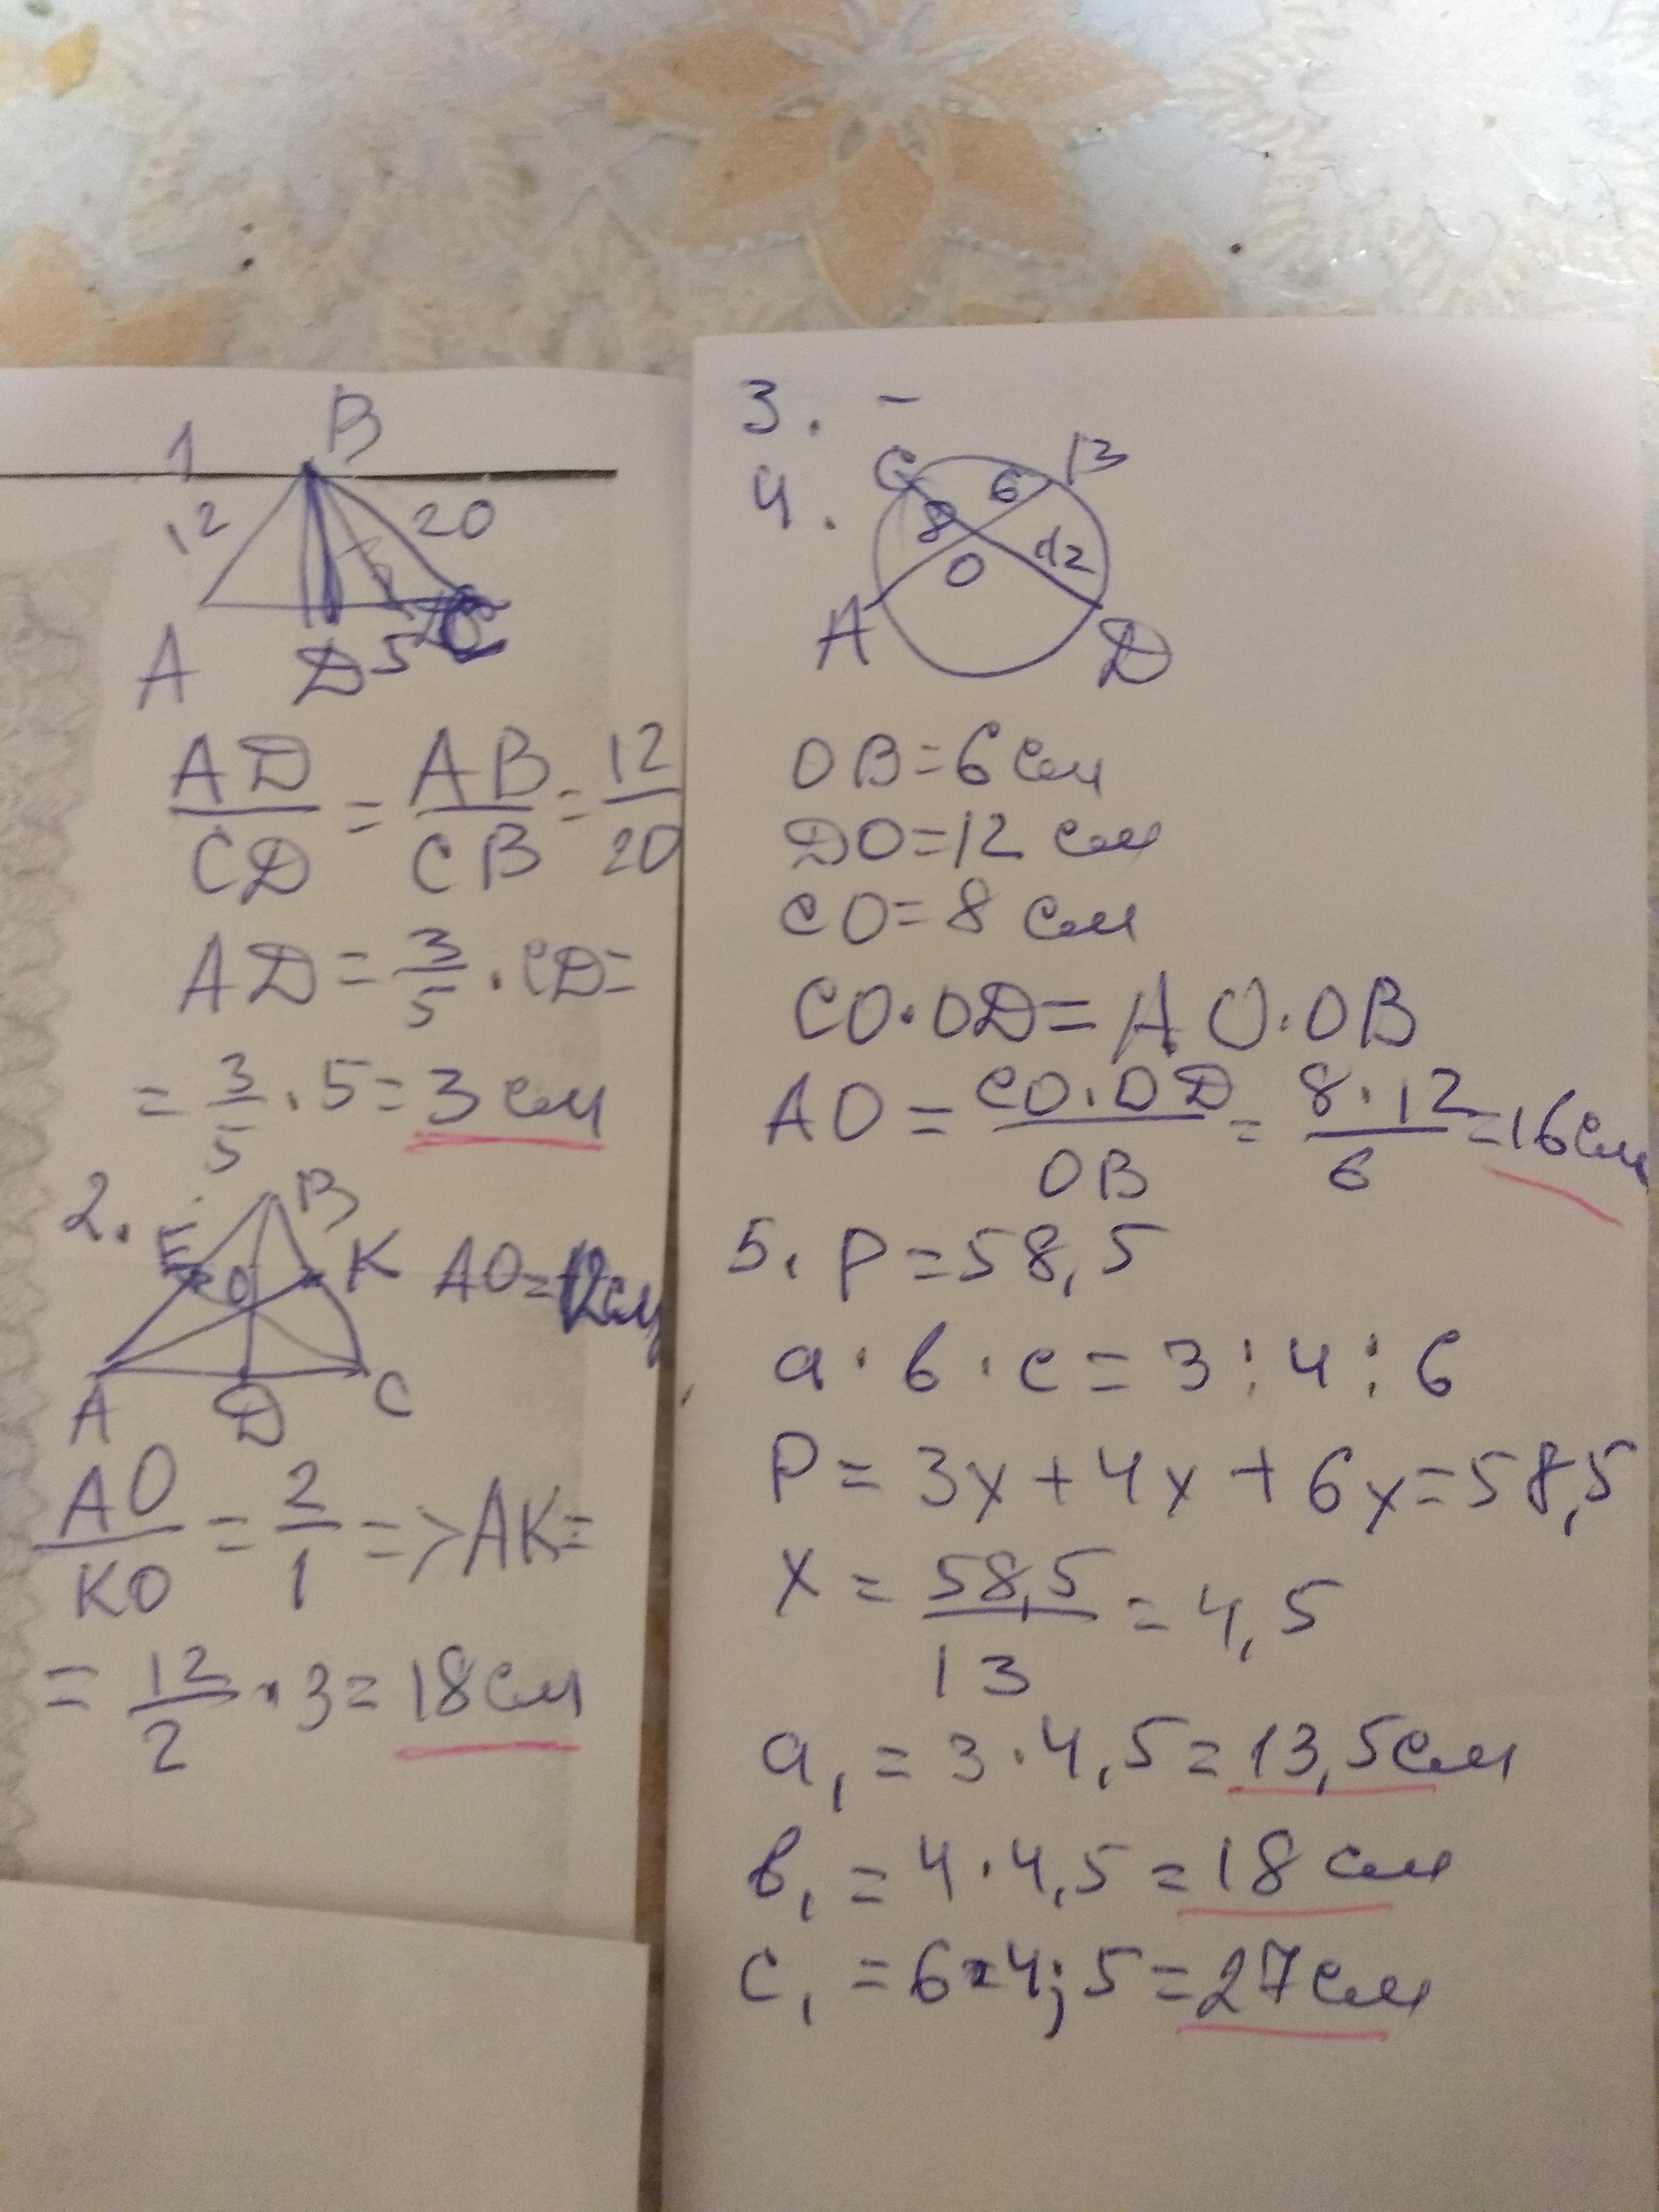 1
B
12
20
A D 5 C
AD/CD = AB/CB = 12/20
AD = 3/5 · CD =
= 3/5 · 5 = 3 см
2.
B
E
O
K
AO = 12см
A D C
AO/KO = 2/1 => AK =
= 12/2 · 3 = 18 см
3. –
4.
C
6
B
8
12
O
A
D
OB = 6 см
DO = 12 см
CO = 8 см
CO · OD = AO · OB
AO = CO · OD/OB = 8 · 12/6 = 16 см
5. P = 58,5
a · b · c = 3 : 4 : 6
P = 3x + 4x + 6x = 58,5
x = 58,5/13 = 4,5
a₁ = 3 · 4,5 = 13,5 см
b₁ = 4 · 4,5 = 18 см
c₁ = 6 · 4,5 = 27 см